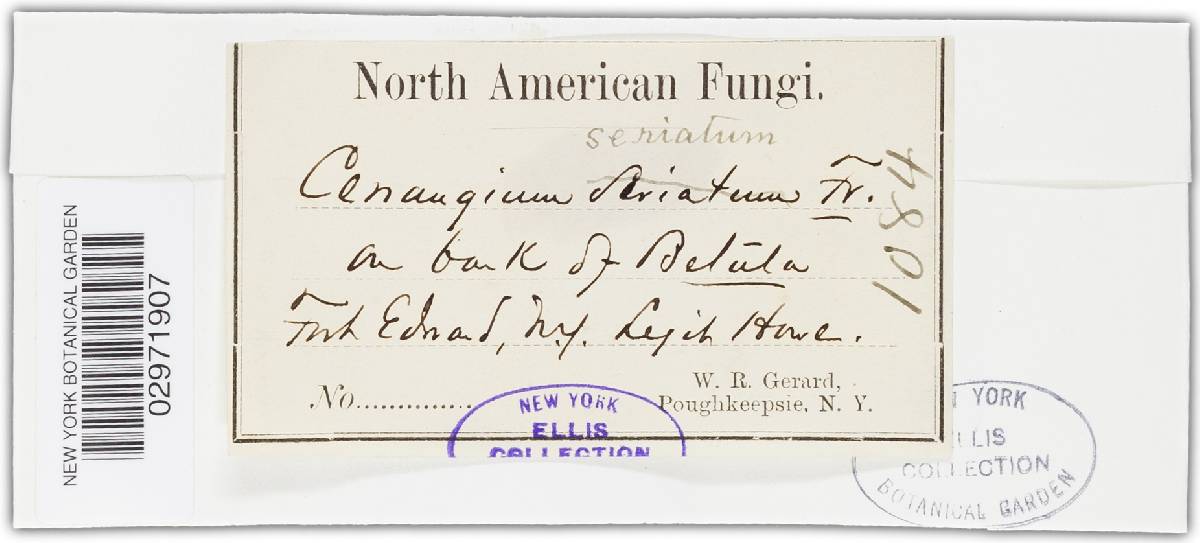 North American Fungi.
seriatum
Cenangium seriatum Fr.
on bark of Betula
Fort Edward, N.Y. Legit Howe.
No..............
W. R. Gerard,
Poughkeepsie, N. Y.
1084
NEW YORK
ELLIS
COLLECTION
YORK
ELLIS
COLLECTION
BOTANICAL GARDEN
NEW YORK BOTANICAL GARDEN
02971907